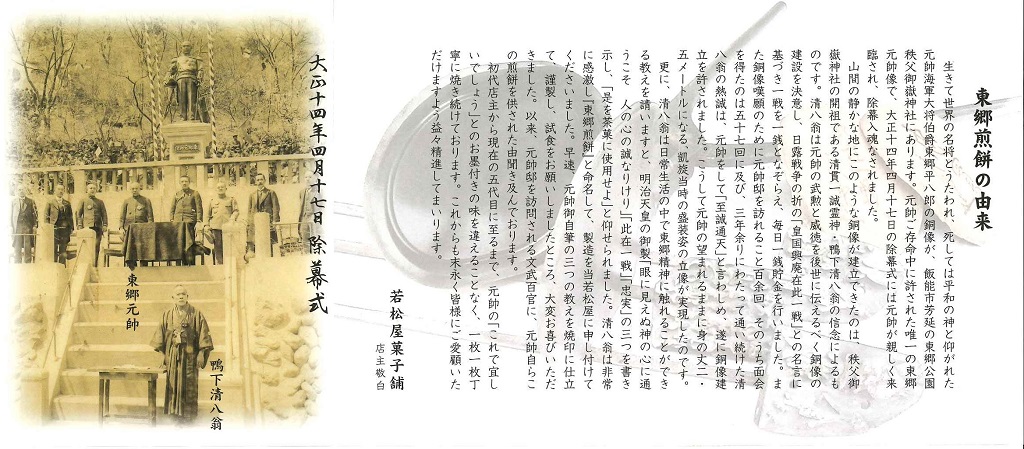 東郷煎餅の由来
生きて世界の名将とうたわれ、死しては平和の神と仰がれた
元帥海軍大将伯爵東郷平八郎の銅像が、飯能市芳延の東郷公園
秩父御嶽神社にあります。元帥ご存命中に許された唯一の東郷
元帥像で、大正十四年四月十七日の除幕式には元帥が親しく来
臨され、除幕入魂なされました。
山間の静かな地にこのような銅像が建立できたのは、秩父御
嶽神社の開祖である清貫一誠霊神・鴨下清八翁の信念によるも
のです。清八翁は元帥の武勲と威徳を後世に伝えるべく銅像の
建設を決意し、日露戦争の折の「皇国興廃在此一戦」との名言に
基づき一戦を一銭となぞらえ、毎日一銭貯金を行いました。ま
た銅像嘆願のために元帥邸を訪れること百余回、そのうち面会
を得たのは五十七回に及び、三年余りにわたって通い続けた清
八翁の熱誠は、元帥をして「至誠通天」と言わしめ、遂に銅像建
立を許されました。こうして元帥の望まれるままに身の丈二・
五メートルになる、凱旋当時の盛装姿の立像が実現したのです。
更に、清八翁は日常生活の中で東郷精神に触れることができ
る教えを請いますと、明治天皇の御製「眼に見えぬ神の心に通
うこそ 人の心の誠なりけり」「此在一戦」「忠実」の三つを書き
示し、「是を茶菓に使用せよ」と仰せられました。清八翁は非常
に感激し『東郷煎餅』と命名して、製造を当若松屋に申し付けて
くださいました。早速、元帥御自筆の三つの教えを焼印に仕立
て、謹製し、試食をお願いしましたところ、大変お喜びいただ
きました。以来、元帥邸を訪問される文武百官に、元帥自らこ
の煎餅を供された由聞き及んでおります。
初代店主から現在の五代目に至るまで、元帥の「これで宜し
いでしょう」とのお墨付きの味を違えることなく、一枚一枚丁
寧に焼き続けております。これからも末永く皆様にご愛顧いた
だけますよう益々精進してまいります。
若松屋菓子舗
店主敬白
大正十四年四月十七日 除幕式
東郷元帥
鴨下清八翁